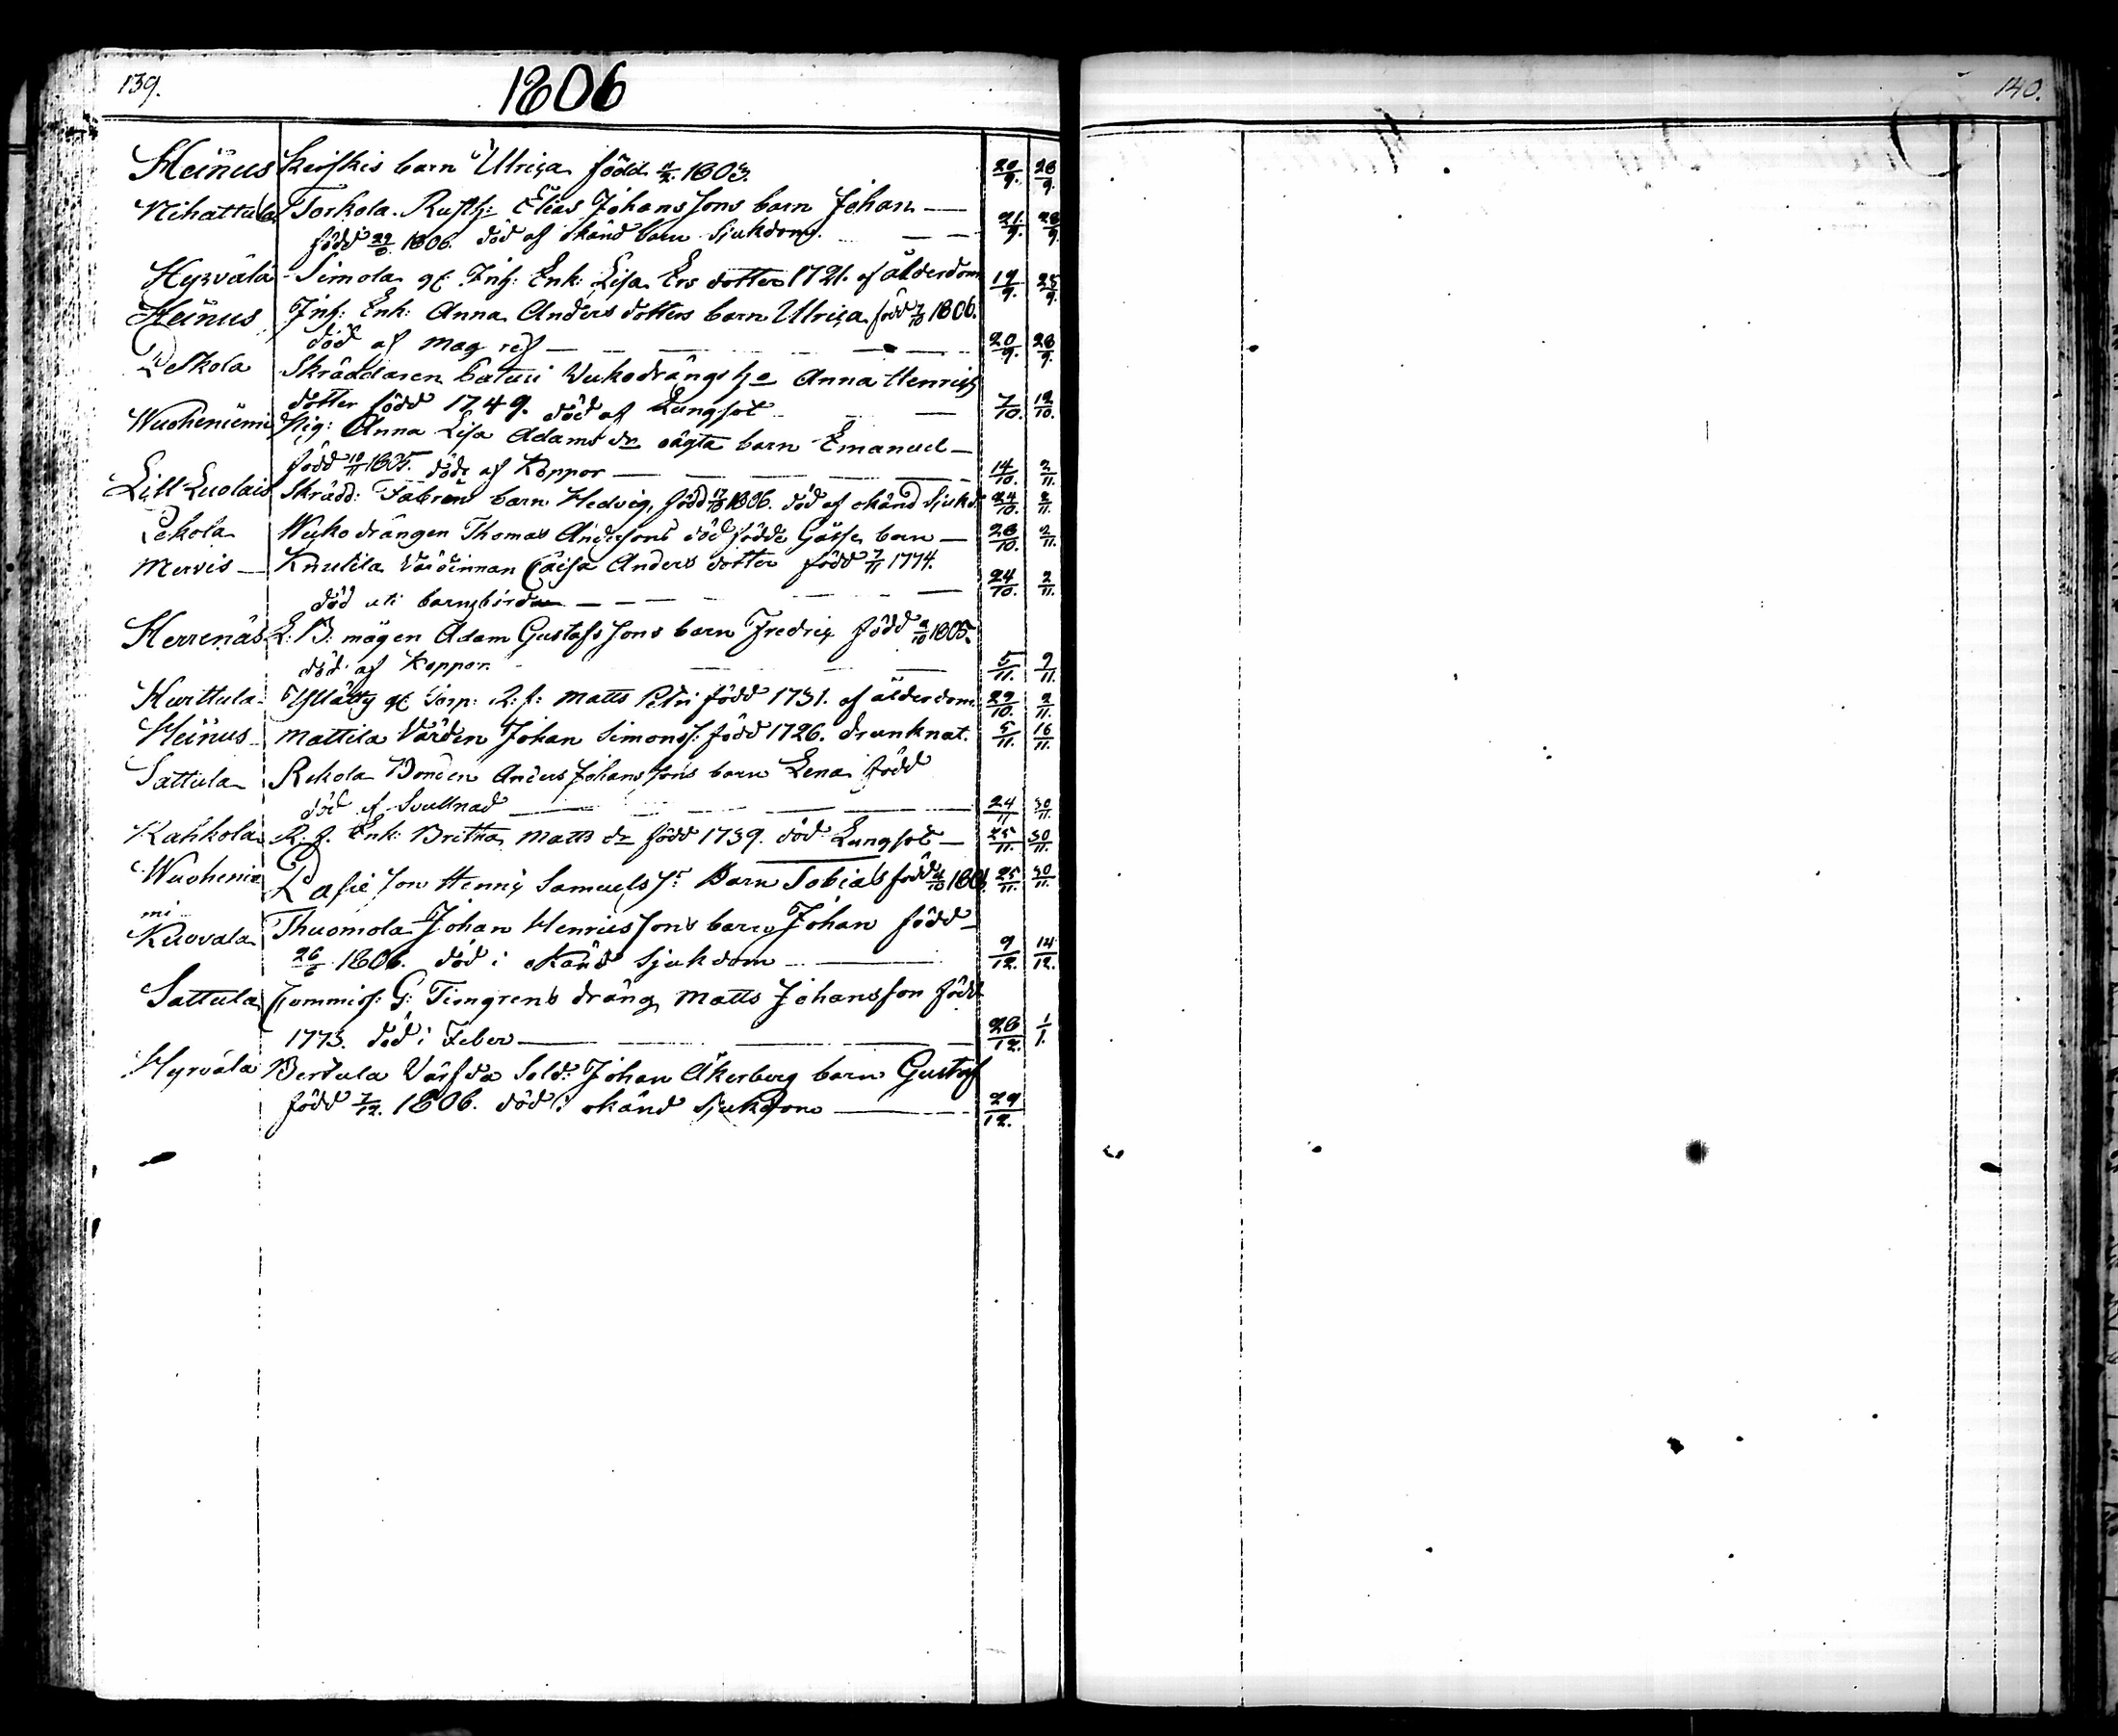 139.
1806
140.
Heinus Keiskis barn Ulrica född 1803. 20/9. 28/9.
Nihattula Torkola Rusth: Elias Johanssons barn Johan — 21/9. 28/9.
född 1806. död af okänd barn sjukdom.
Hyrvälä Simola Inh: Enk: Lisa Ers dotter 1721. af ålderdom 19/9. 25/9.
Heinus Inh: Enk: Anna Anders dotters barn Ulrica född 1806.
död af mag ref — 20/9. 28/9.
Pelkola Skräddaren Wukodrängs Anna Henrichs
dotter född 1749. död af Lungsot — 7/10. 12/10.
Wuoheniemi Pig: Anna Lisa Adams dr oägta barn Emanuel —
född 1805. död af Koppor — 14/10. 2/11.
Lill Luolais Skrädd: barn Hedvig, född 1806. död af okänd Sjukd. 24/10. 2/11.
Pekola Wukodrängen Thomas Anderssons död födde Gosse barn — 28/10. 2/11.
Mervis — Knutila Värdinnan Caisa Anders dotter född 7/11 1774.
död uti barnsbörd — 24/10. 2/11.
Herrenäs L: B: mågen Adam Gustafssons barn Fredric född 1805.
död af Koppor. 5/11. 9/11.
Hurttula Torp: Matts Petri född 1731. af ålderdom 29/10. 2/11.
Heinus Mattila Värden Johan Simonss: född 1726. drunknat. 5/11. 16/11.
Sattula Rekola Bonden Anders Johanssons barn Lena född
död af Svullnad — 24/11 30/11.
Kahkola Enk: Britha Matts dr född 1739. död Lungsot — 25/11. 30/11.
Wuohenie Henric Samuels barn Tobias född 25/11. 30/11.
mi
Kuovala Thuomola Johan Henricssons barn Johan född
1806. död i okänd Sjukdom — 9/12. 14/12.
Sattula Commiss: G: Timgrens dräng Matts Johansson född
1773. död i Feber — 28/12. 1/1.
Hyrvälä Bertula Värfda Sold: Johan Åkerberg barn Gustaf
född 7/12. 1806. död i okänd Sjukdom — 29/12.